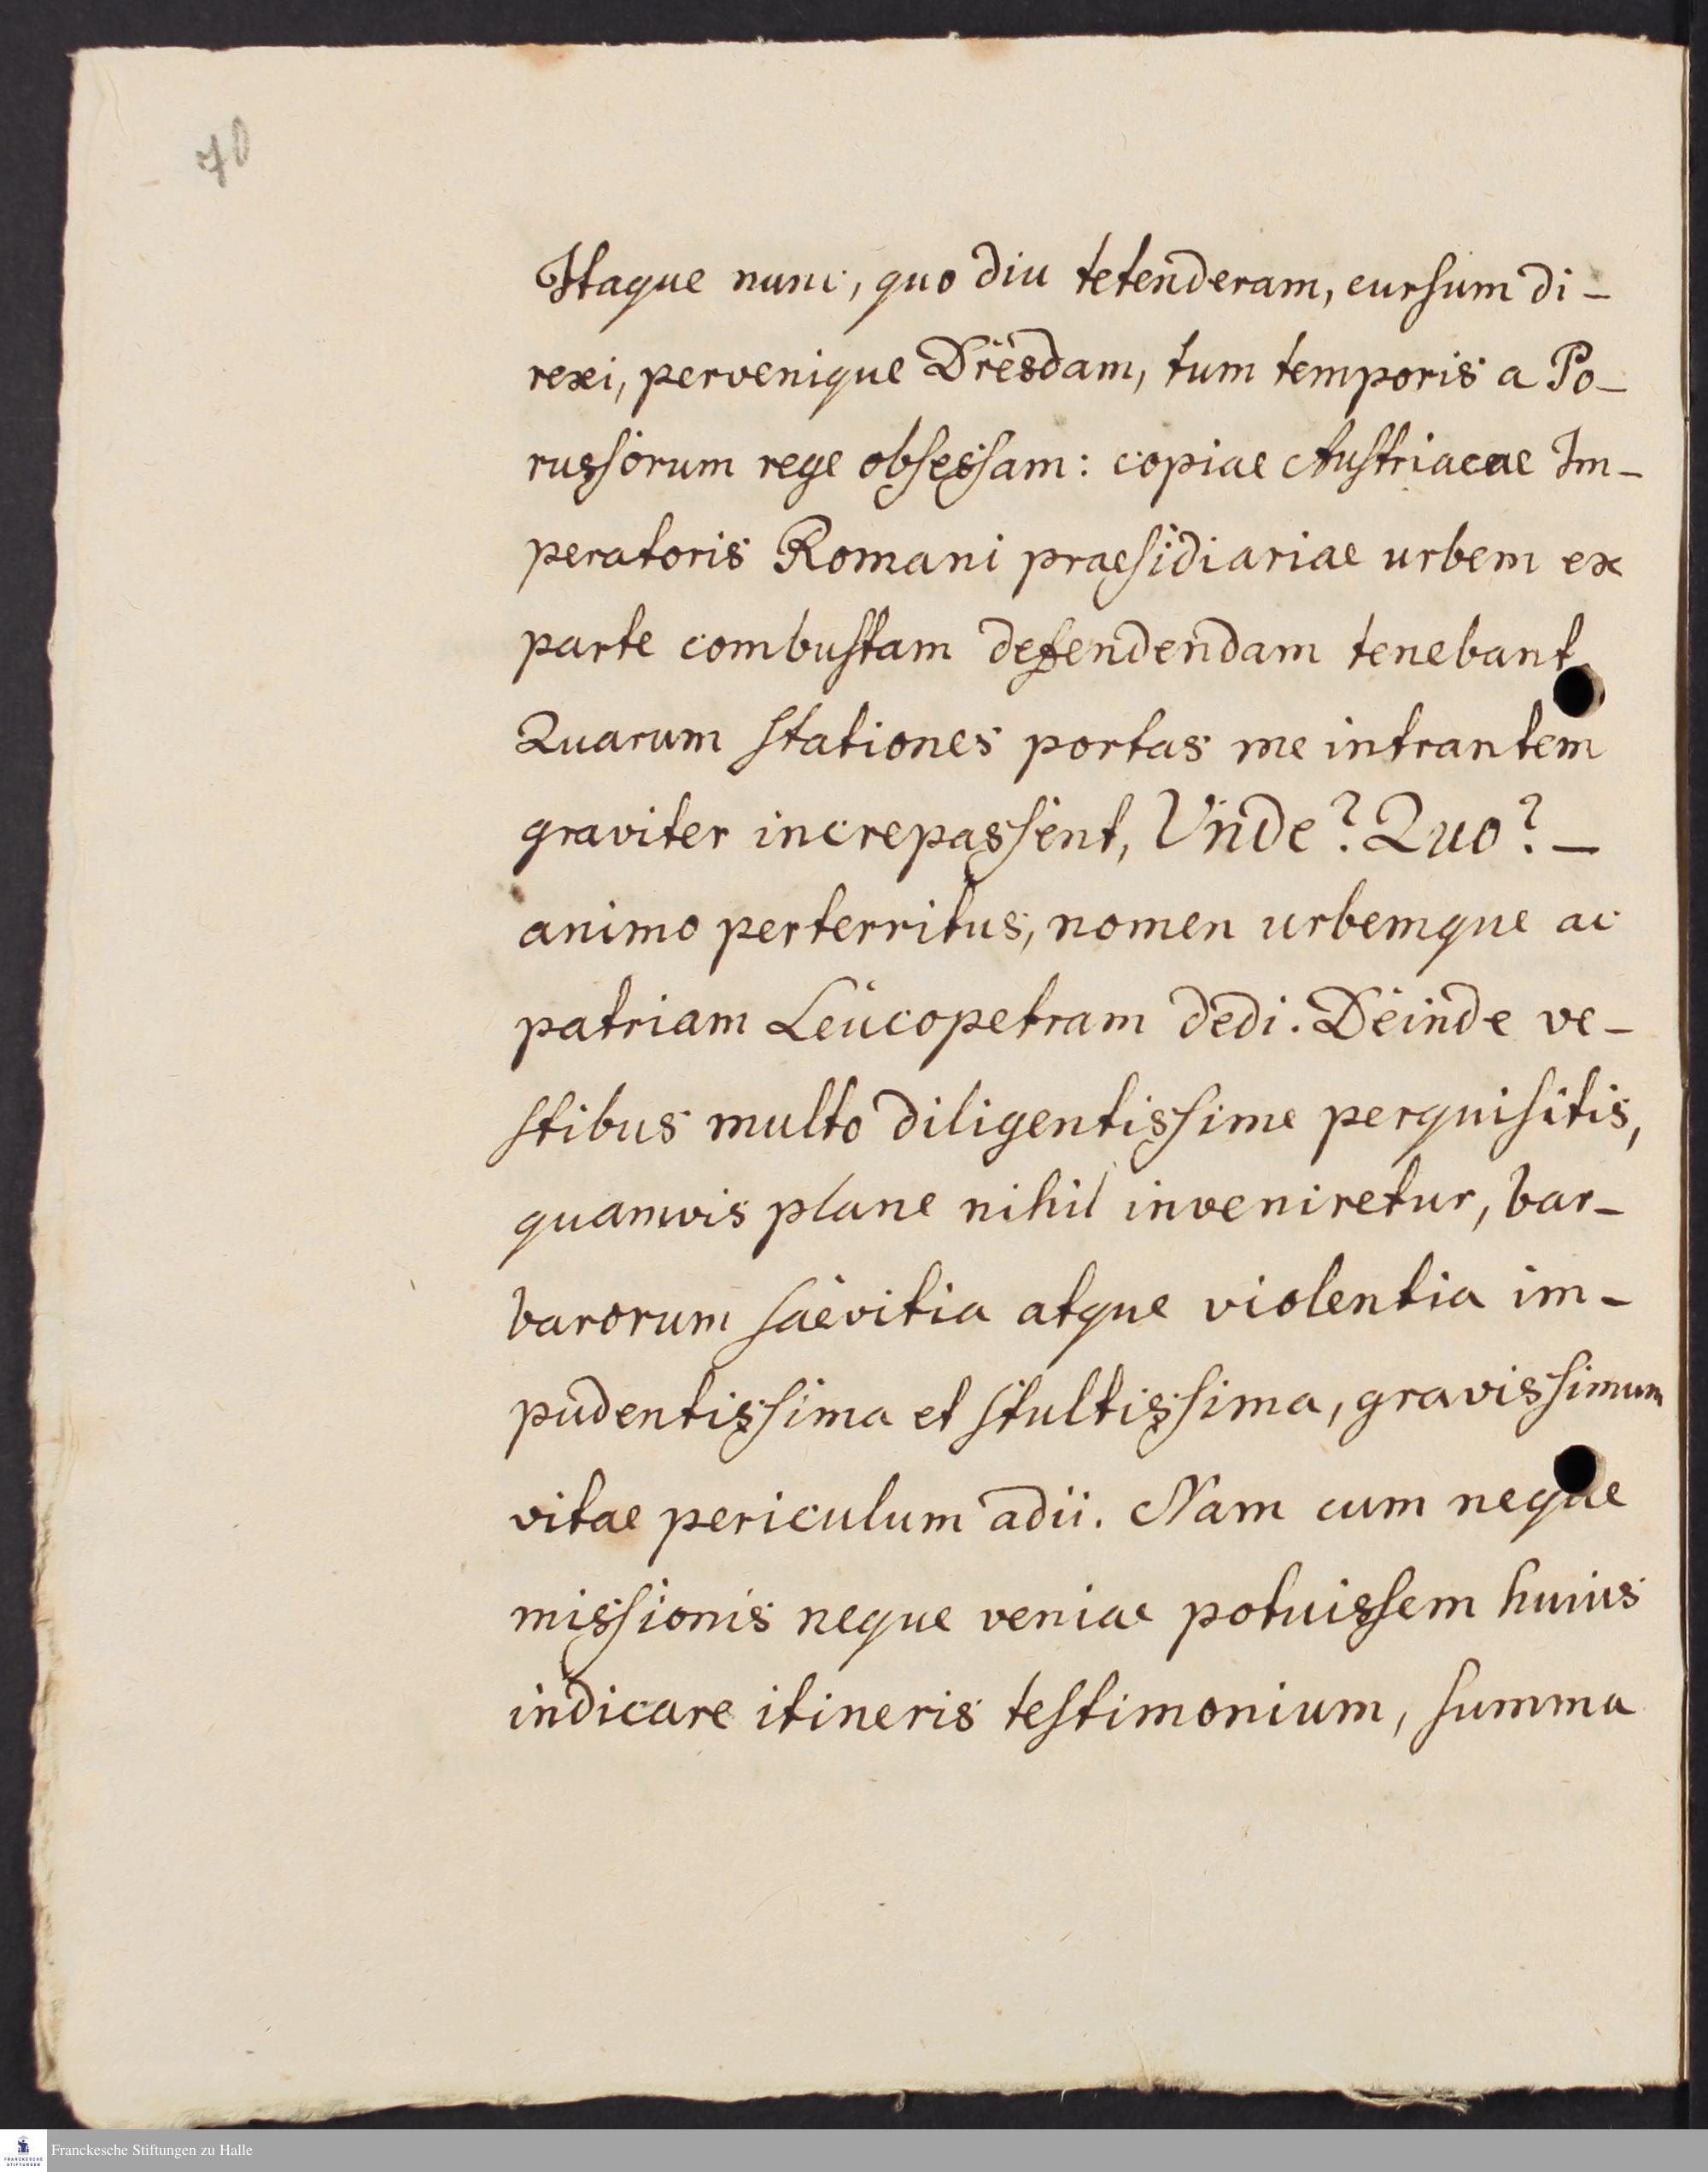 70
Itaque nunc, quo diu tetenderam, cursum di-
rexi, pervenique Dresdam, tum temporis a Po-
russorum rege obsessam: copiae Austriacae Im-
peratoris Romani praesidiariae urbem ex
parte combustam defendendam tenebant.
Quarum stationes portas me intrantem
graviter increpassent, Unde? Quo? –
animo perterritus, nomen urbemque ac
patriam Leucopetram dedi. Deinde ve-
stibus multo diligentissime perquisitis,
quamvis plane nihil inveniretur, bar-
barorum saevitia atque violentia im-
pudentissima et stultissima, gravissimum
vitae periculum adii. Nam cum neque
missionis neque veniae potuissem huius
indicare itineris testimonium, summa
Franckesche Stiftungen zu Halle
FRANCKESCHE
STIFTUNGEN